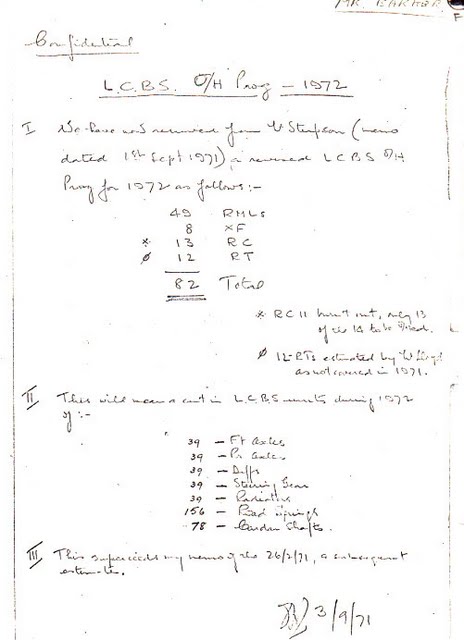 MR. BARKER
Confidential
L.C.B.S. O/H Prog – 1972
I We have now received from Mr Simpson (memo
dated 1st Sept 1971) a revised LCBS O/H
Prog for 1972 as follows:-
49 RMLs
8 XF
* 13 RC
ø 12 RT
82 Total
* RC11 burnt out, only 13
of the 14 to be
ø 12 RTs estimated by Mr Lloyd
as not covered in 1971.
II This will mean a cut in L.C.B.S units during 1972
of:-
39 – Ft Axles
39 – Rr axles
39 – Diffs
39 – Steering Gear
39 – Radiators
156 – Road Springs
78 – Cardan Shafts.
III This supersedes my memo of the 26/2/71, & subsequent
estimates.
3/9/71